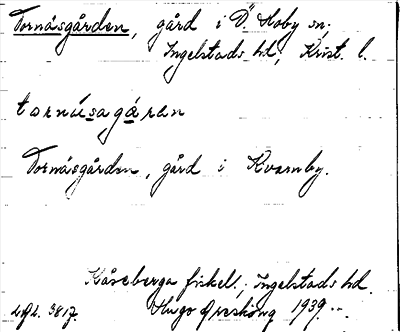 Tornåsgården, gård i Ö. Hoby sn;
Ingelstads hd, Krist. l.
tornåsagáran
Tornåsgården, gård i Kvarnby.
Kåseberga fiskel.; Ingelstads hd.
Hugo Areskoug 1939.